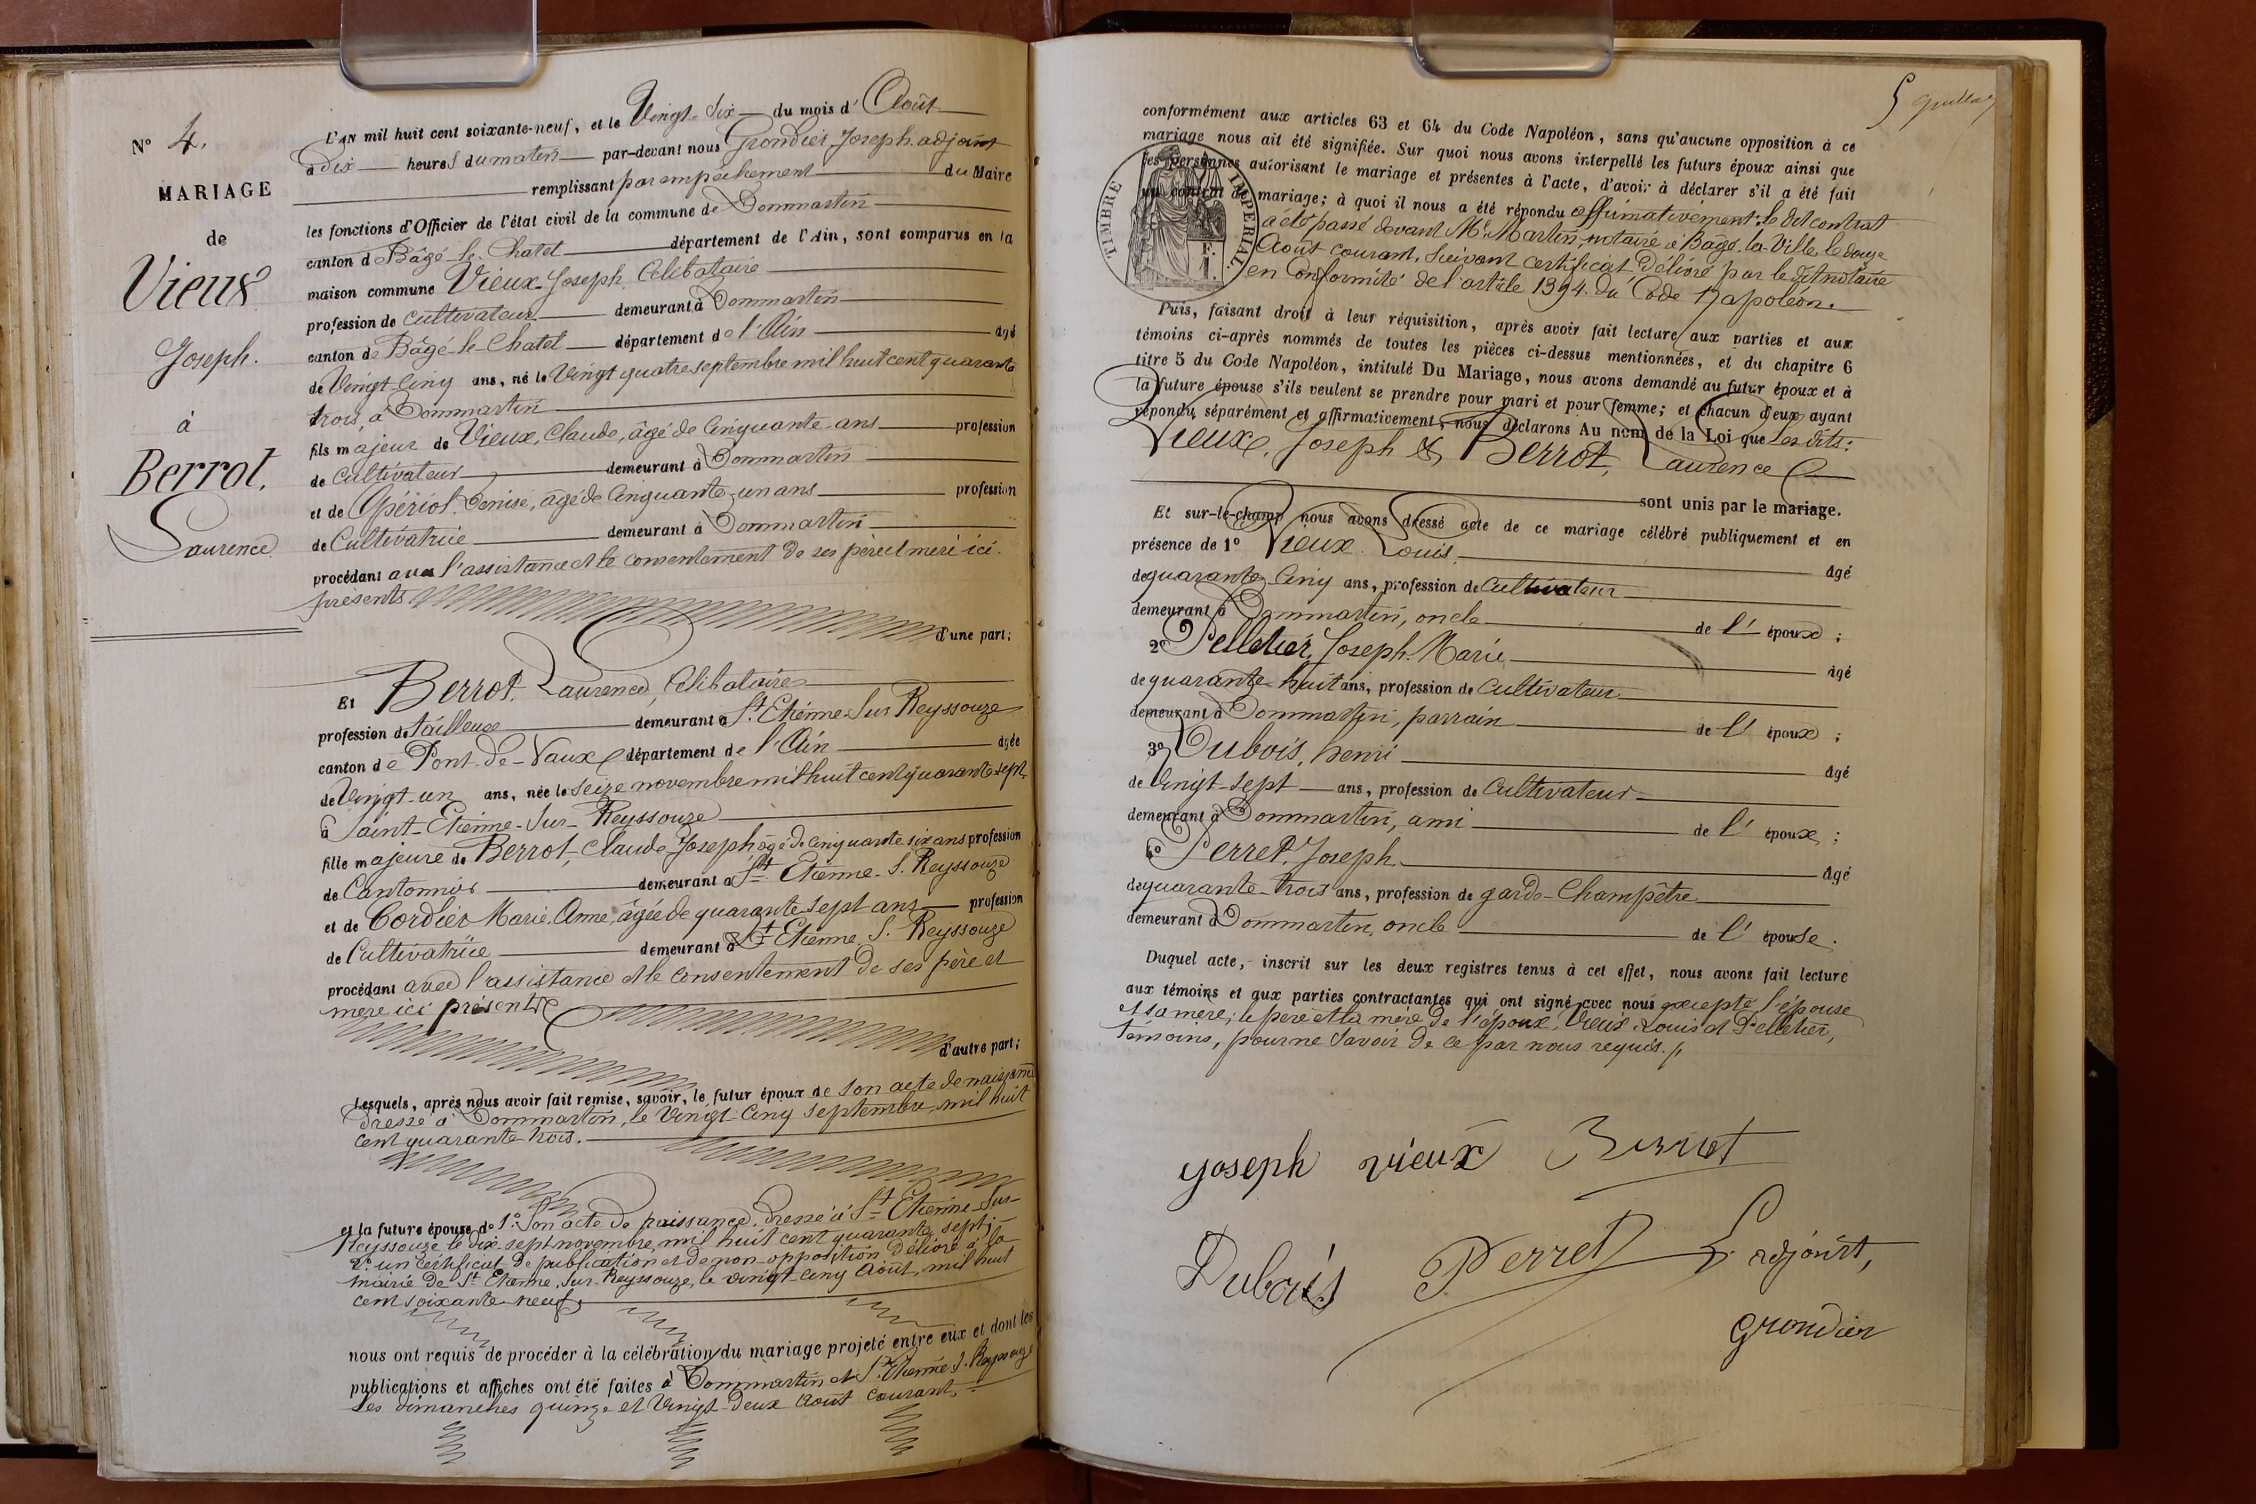 N° 4.
MARIAGE
de
Vieux
Joseph.
à
Berrot,
Laurence
L'AN mil huit cent soixante-neuf, et le Vingt-Six du mois d'Août
à Dix heures du matin par-devant nous Grondier, Joseph, adjoint
remplissant par empêchement du Maire
les fonctions d'Officier de l'état civil de la commune de Dommartin
canton de Bâgé-le-Chatel département de l'Ain, sont comparus en la
maison commune Vieux, Joseph, Célibataire
profession de Cultivateur demeurant à Dommartin
canton de Bâgé-le-Chatel département de l'Ain âgé
de Vingt-Cinq ans, né le Vingt quatre septembre mil huit cent quarante
trois, à Dommartin
fils majeur de Vieux, Claude, âgé de Cinquante ans profession
de Cultivateur demeurant à Dommartin
et de Denise, âgé de Cinquante-un ans profession
de Cultivatrice demeurant à Dommartin
procédant avec l'assistance et le consentement de ses père et mère ici
présents.
d'une part;
Et Berrot, Laurence, Célibataire
profession de tailleuse demeurant à St. Etienne-Sur-Reyssouze
canton de Pont-de-Vaux département de l'Ain âgée
de Vingt-un ans, née le seize novembre mil huit cent quarante-sept,
à Saint-Etienne-Sur-Reyssouze
fille majeure de Berrot, Claude-Joseph âgé de Cinquante six ans profession
de Cantonnier demeurant à St. Etienne-S.-Reyssouze
et de Cordier Marie-Anne, âgée de quarante sept ans profession
de Cultivatrice demeurant à St. Etienne S. Reyssouze
procédant avec l'assistance et le consentement de ses père et
mère ici présents
d'autre part;
Lesquels, après nous avoir fait remise, savoir, le futur époux de son acte de naissance
dressé à Dommartin, le Vingt-Cinq septembre, mil huit
cent quarante-trois.
et la future épouse de 1° Son acte de naissance, dressé à St. Etienne-Sur-
Reyssouze le dix-sept novembre, mil huit cent quarante sept;
2° un certificat de publication et de non-opposition délivré à la
mairie de St. Etienne-Sur-Reyssouze, le vingt-cinq Août, mil huit
cent soixante-neuf,
nous ont requis de procéder à la célébration du mariage projeté entre eux et dont les
publications et affiches ont été faites à Dommartin et St. Etienne-S.-Reyssouze
les dimanches quinze et Vingt-Deux Août Courant.
5
conformément aux articles 63 et 64 du Code Napoléon, sans qu'aucune opposition à ce
mariage nous ait été signifiée. Sur quoi nous avons interpellé les futurs époux ainsi que
les personnes autorisant le mariage et présentes à l'acte, d'avoir à déclarer s'il a été fait
un contrat de mariage; à quoi il nous a été répondu affirmativement: le dit contrat
a été passé devant Me. Martin, notaire à Bâgé-la-Ville, le douze
Août courant, Suivant certificat délivré par le dit notaire
en Conformité de l'article 1394 du Code Napoléon.
TIMBRE IMPERIAL.
Puis, faisant droit à leur réquisition, après avoir fait lecture aux parties et aux
témoins ci-après nommés de toutes les pièces ci-dessus mentionnées, et du chapitre 6
titre 5 du Code Napoléon, intitulé Du Mariage, nous avons demandé au futur époux et à
la future épouse s'ils veulent se prendre pour mari et pour femme; et chacun d'eux ayant
répondu séparément et affirmativement, nous déclarons Au nom de la Loi que Les dits:
Vieux, Joseph & Berrot, Laurence
sont unis par le mariage.
Et sur-le-champ nous avons dressé acte de ce mariage célébré publiquement et en
présence de 1° Vieux Louis âgé
de quarante-Cinq ans, profession de Cultivateur
demeurant à Dommartin, oncle de l'époux;
2° Pelletier, Joseph-Marie âgé
de quarante-huit ans, profession de Cultivateur
demeurant à Dommartin, parrain de l'époux;
3° Dubois, henri âgé
de Vingt-sept ans, profession de Cultivateur
demeurant à Dommartin, ami de l'époux;
4° Perret, Joseph âgé
de quarante-trois ans, profession de garde-Champêtre
demeurant à Dommartin, oncle de l'épouse.
Duquel acte, inscrit sur les deux registres tenus à cet effet, nous avons fait lecture
aux témoins et aux parties contractantes qui ont signé avec nous excepté l'épouse
et sa mère; le père et la mère de l'époux, Vieux Louis et Pelletier,
témoins, pour ne savoir de ce par nous requis.
joseph vieux Berrot
Dubois Perret L'adjoint,
Grondier